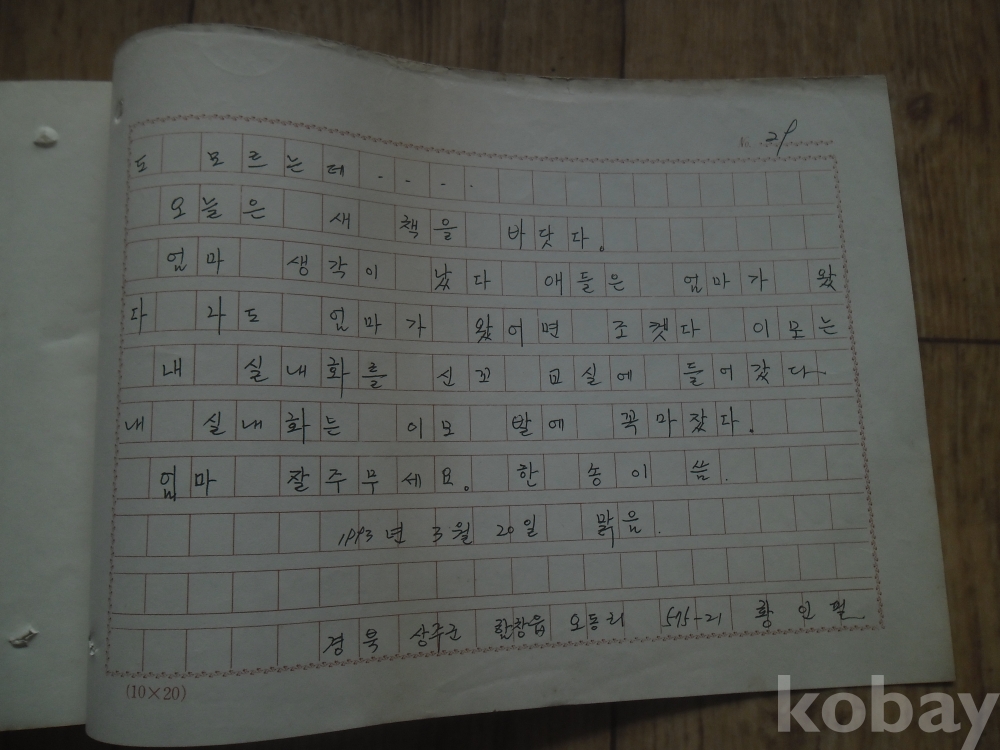 29
도 모르는데 . . . .
오늘은 새 책을 바닷다.
엄마 생각이 났다 애들은 엄마가 왔
다 나도 엄마가 왔어면 조켓다 이모는
내 실내화를 신꼬 교실에 들어갔다.
내 실내화는 이모 발에 꼭마잤다.
엄마 잘주무세요. 한 송이 씀.
1993년 3월 20일 맑음.
경북 상주군 함창읍 오동리 595-21 황인필
(10×20)
kobay